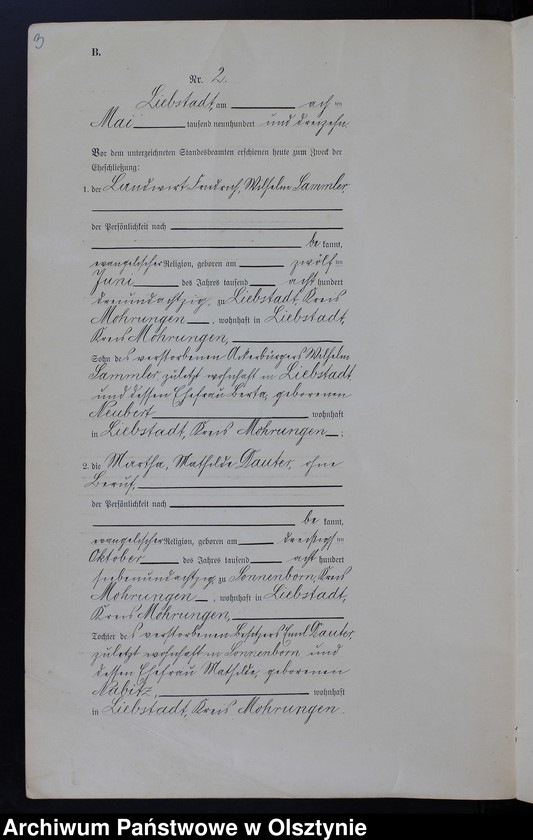 3
B.
Nr. 2.
Liebstadt, am acht ten
Mai tausend neunhundert und dreizehn.
Vor dem unterzeichneten Standesbeamten erschienen heute zum Zweck der
Eheschließung:
1. der Landwirt Friedrich, Wilhelm Sammler
der Persönlichkeit nach
be kannt,
evangelischer Religion, geboren am zwölf ten
Juni des Jahres tausend acht hundert
dreiundachtzig, zu Liebstadt, Kreis
Mohrungen, wohnhaft in Liebstadt,
Kreis Mohrungen,
Sohn des verstorbenen Ackerbürgers Wilhelm
Sammler, zuletzt wohnhaft in Liebstadt
und dessen Ehefrau Berta, geborenen
Neubert wohnhaft
in Liebstadt, Kreis Mohrungen;
2. die Martha, Mathilde Dauter, ohne
Beruf,
der Persönlichkeit nach
be kannt,
evangelischer Religion, geboren am dreißigs ten
Oktober des Jahres tausend acht hundert
siebenundachtzig, zu Sonnenborn, Kreis
Mohrungen, wohnhaft in Liebstadt,
Kreis Mohrungen,
Tochter des verstorbenen Besitzers Dauter,
zuletzt wohnhaft in Sonnenborn und
dessen Ehefrau Mathilde, geborenen
Nabitz, wohnhaft
in Liebstadt, Kreis Mohrungen.
Archiwum Państwowe w Olsztynie